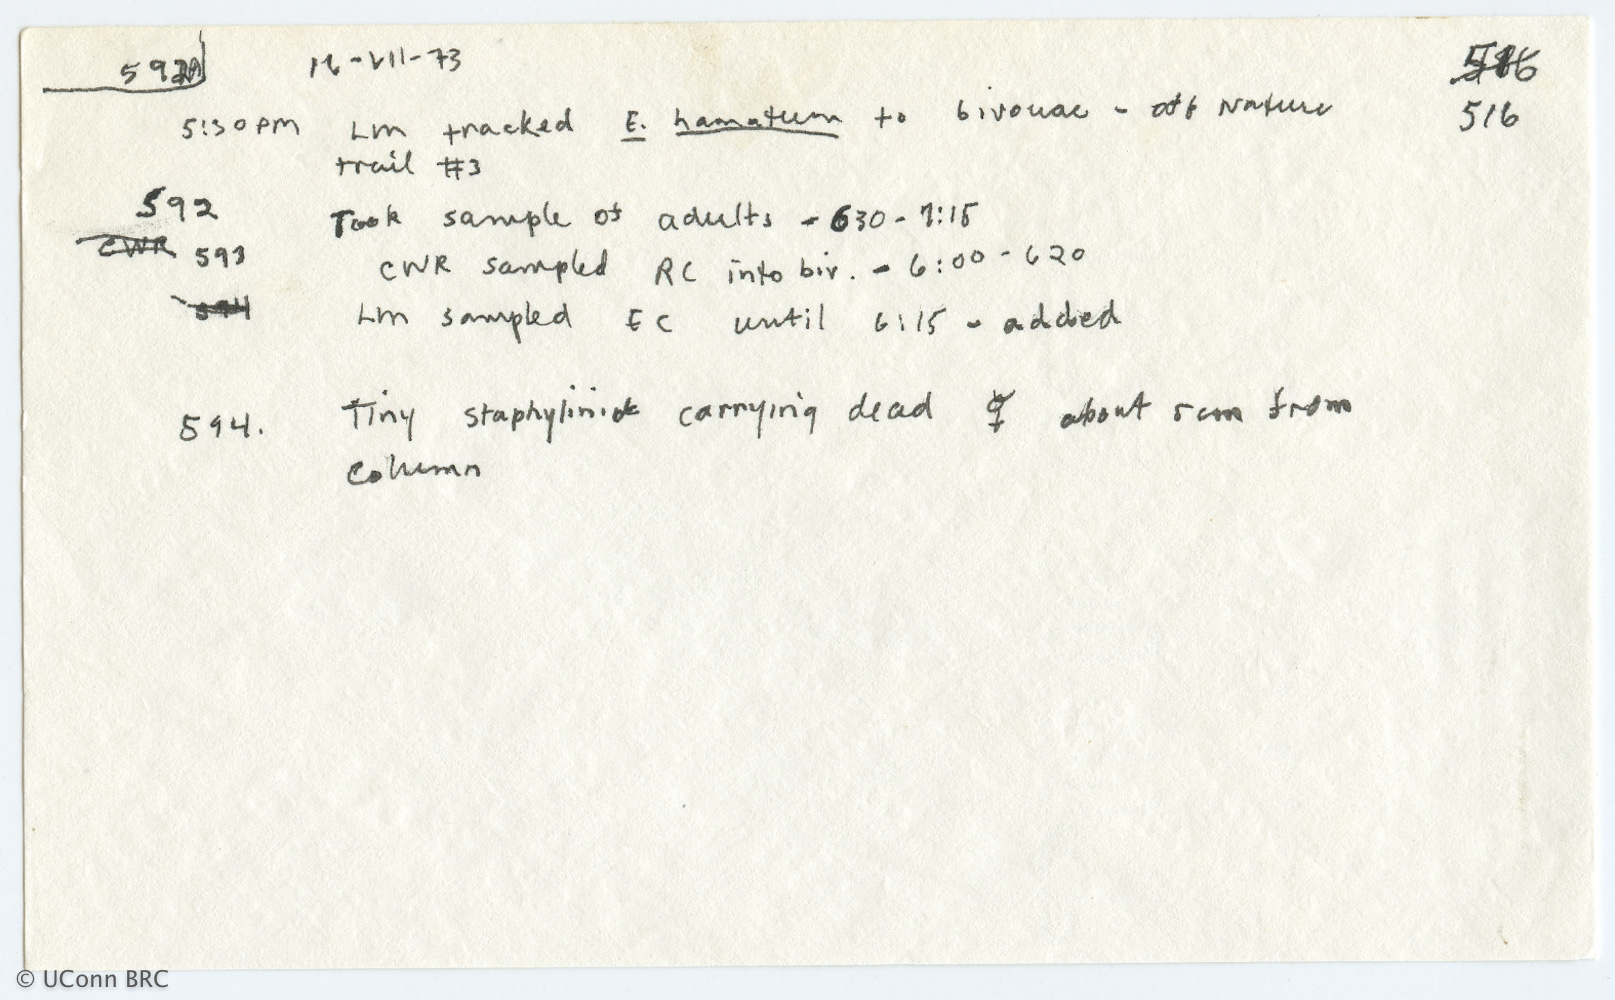 592A 16-VII-73
516
5:30 PM Lm tracked E. hamatum to bivouac - off Nature 516
trail #3
592 Took sample of adults - 630 - 7:15
CWR 593 CWR sampled RC into biv. - 6:00 - 620
594 Lm sampled EC until 6:15 - added
594. Tiny staphylinid carrying dead ☿ about 5cm from
column
© UConn BRC